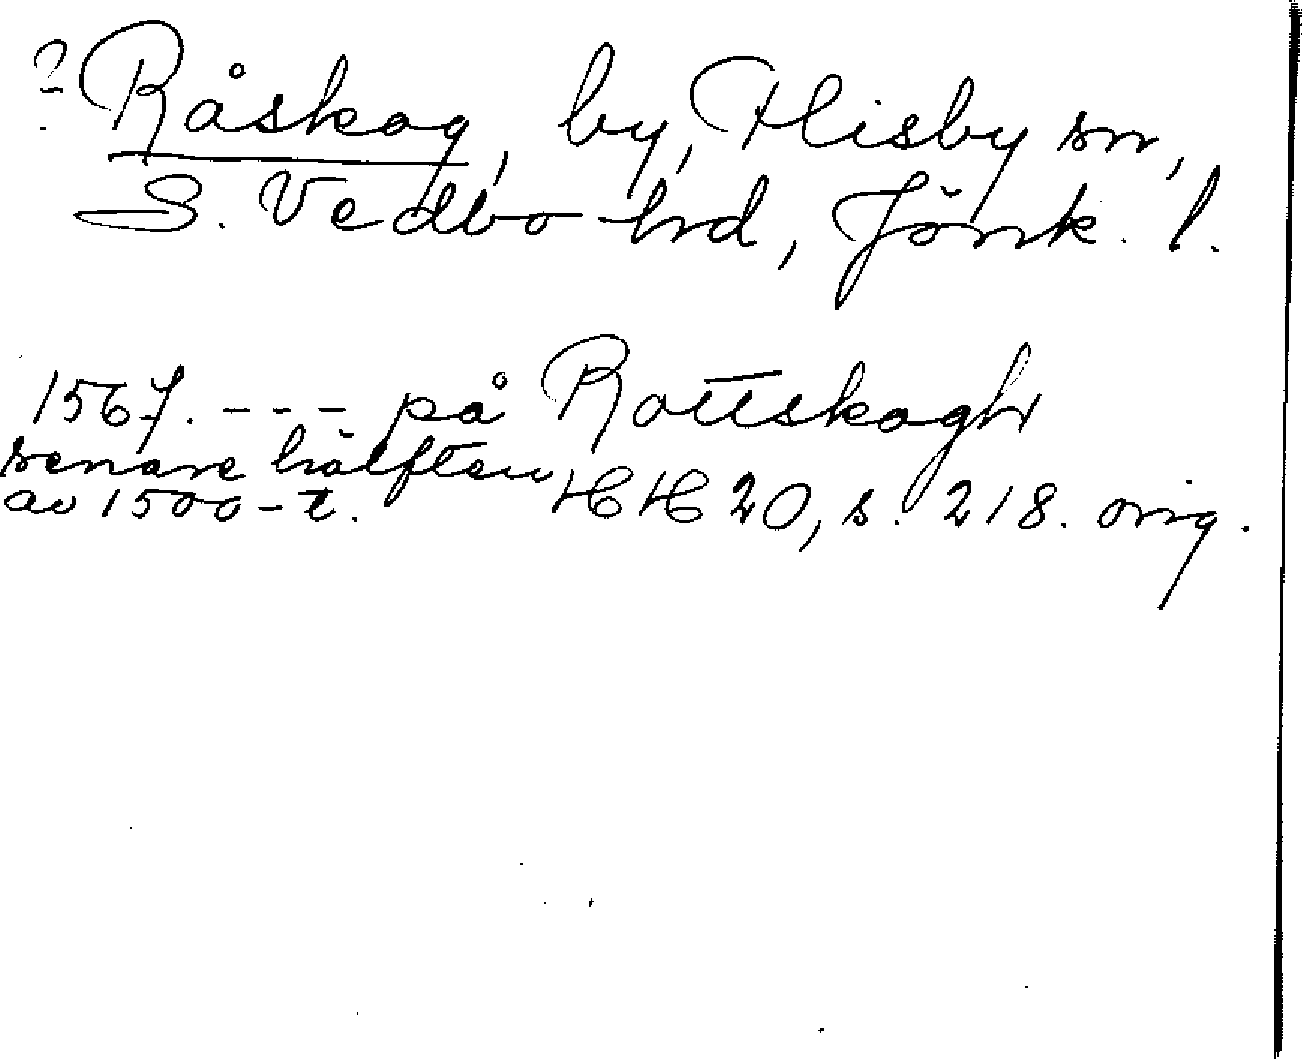 ? Råskog, by, Flisby sn,
S. Vedbo hd, Jönk. l.
1567. - - - på Rottskogh
senare hälften
av 1500-t. HH 20, s. 218. orig.